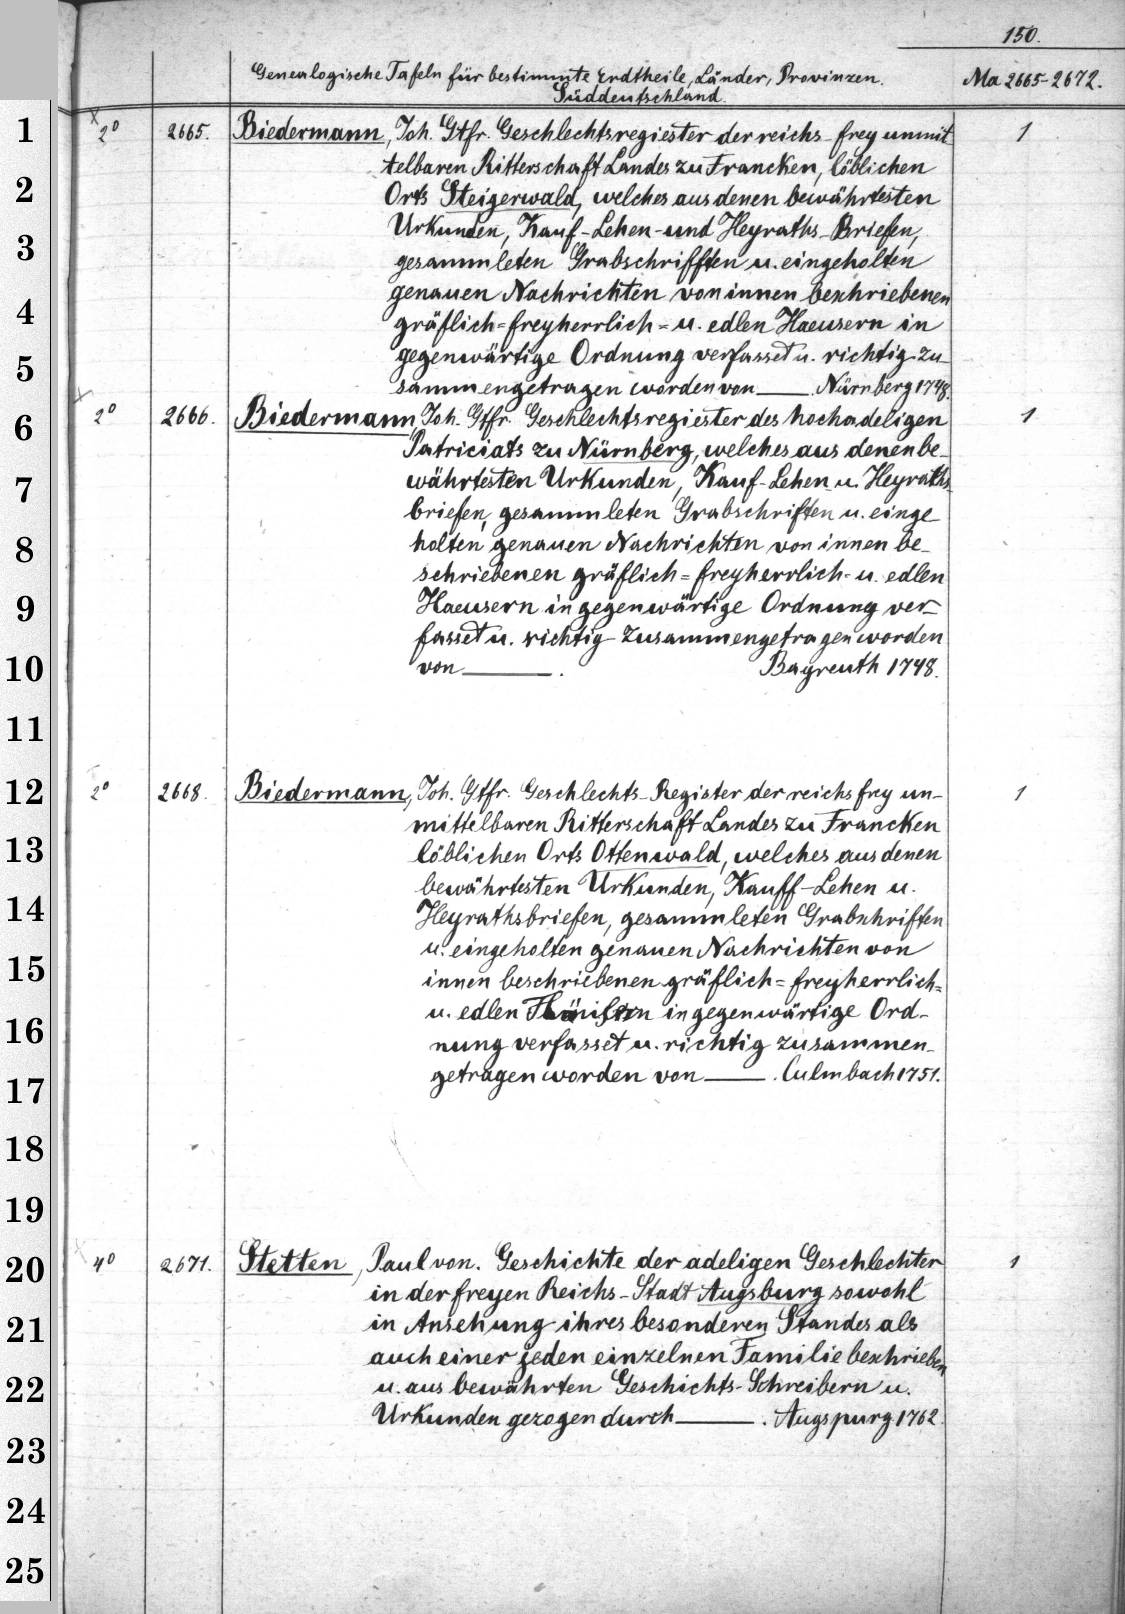 150.
Genealogische Tafeln für bestimmte Erdtheile, Länder, Provinzen. Ma 2665-2672.
Süddeutschland.
1 2° 2665. Biedermann, Joh. Gtfr. Geschlechtsregiester der reichs-frey unmit 1
telbaren Ritterschaft Landes zu Francken, löblichen
2 Orts Steigerwald, welches aus denen bewährtesten
Urkunden, Kauf-Lehen-und Heyraths-Briefen,
3 gesammleten Grabschrifften u. eingeholten
genauen Nachrichten von innen beschriebenen
4 gräflich=freyherrlich=u. edlen Haeusern in
gegenwärtige Ordnung verfasset u. richtig zu-
5 sammengetragen worden von ___ . Nürnberg 1748.
6 2° 2666. Biedermann, Joh. Gtfr. Geschlechtsregiester des hochadeligen 1
Patriciats zu Nürnberg, welches aus denen be-
7 währtesten Urkunden, Kauf-Lehen-u. Heyraths
briefen, gesammleten Grabschriften u. einge
8 holten genauen Nachrichten von innen be-
schriebenen gräflich=freyherrlich-u. edlen
9 Haeusern in gegenwärtige Ordnung ver-
fasset u. richtig zusammengetragen worden
10 von ___ . Bayreuth 1748.
11
12 2° 2668. Biedermann, Joh. Gtfr. Geschlechts-Register der reichs frey un- 1
mittelbaren Ritterschaft Landes zu Francken
13 löblichen Orts Ottenwald, welches aus denen
bewährtesten Urkunden, Kauff-Lehen u.
14 Heyrathsbriefen, gesammleten Grabschriften
u. eingeholten genauen Nachrichten von
15 innen beschriebenen gräflich=freyherrlich=
u. edlen Häusern in gegenwärtige Ord-
16 nung verfasset u. richtig zusammen-
17 getragen worden von ___ . Culmbach 1751.
18
19
20 4° 2671. Stetten, Paul von. Geschichte der adeligen Geschlechter 1
in der freyen Reichs-Stadt Augsburg sowohl
21 in Ansehung ihres besonderen Standes als
auch einer jeden einzelnen Familie beschrieben
22 u. aus bewährten Geschichts-Schreibern u.
Urkunden gezogen durch ___ . Augspurg 1762.
23
24
25